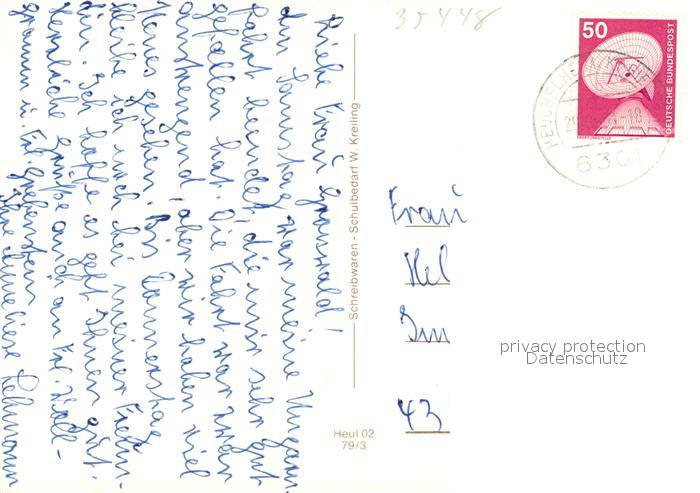 35448
Liebe Frau Grunwald!
Am Sonntag war meine Ungarn-
fahrt beendet, die mir sehr gut
gefallen hat. Die Fahrt war zwar
anstrengend, aber wir haben viel
Neues gesehen. Bis Donnerstag
bleibe ich noch bei meiner Freun-
din. Ich hoffe es geht Ihnen gut.
Herzliche Grüße auch an Frl.
Ihre Anneliese Lehmann
Schreibwaren - Schulbedarf W. Kreiling
Heul 02
79/3
Frau
Hel
Im
43
50
DEUTSCHE BUNDESPOST
HEUCHELHEIM
6301
privacy protection
Datenschutz